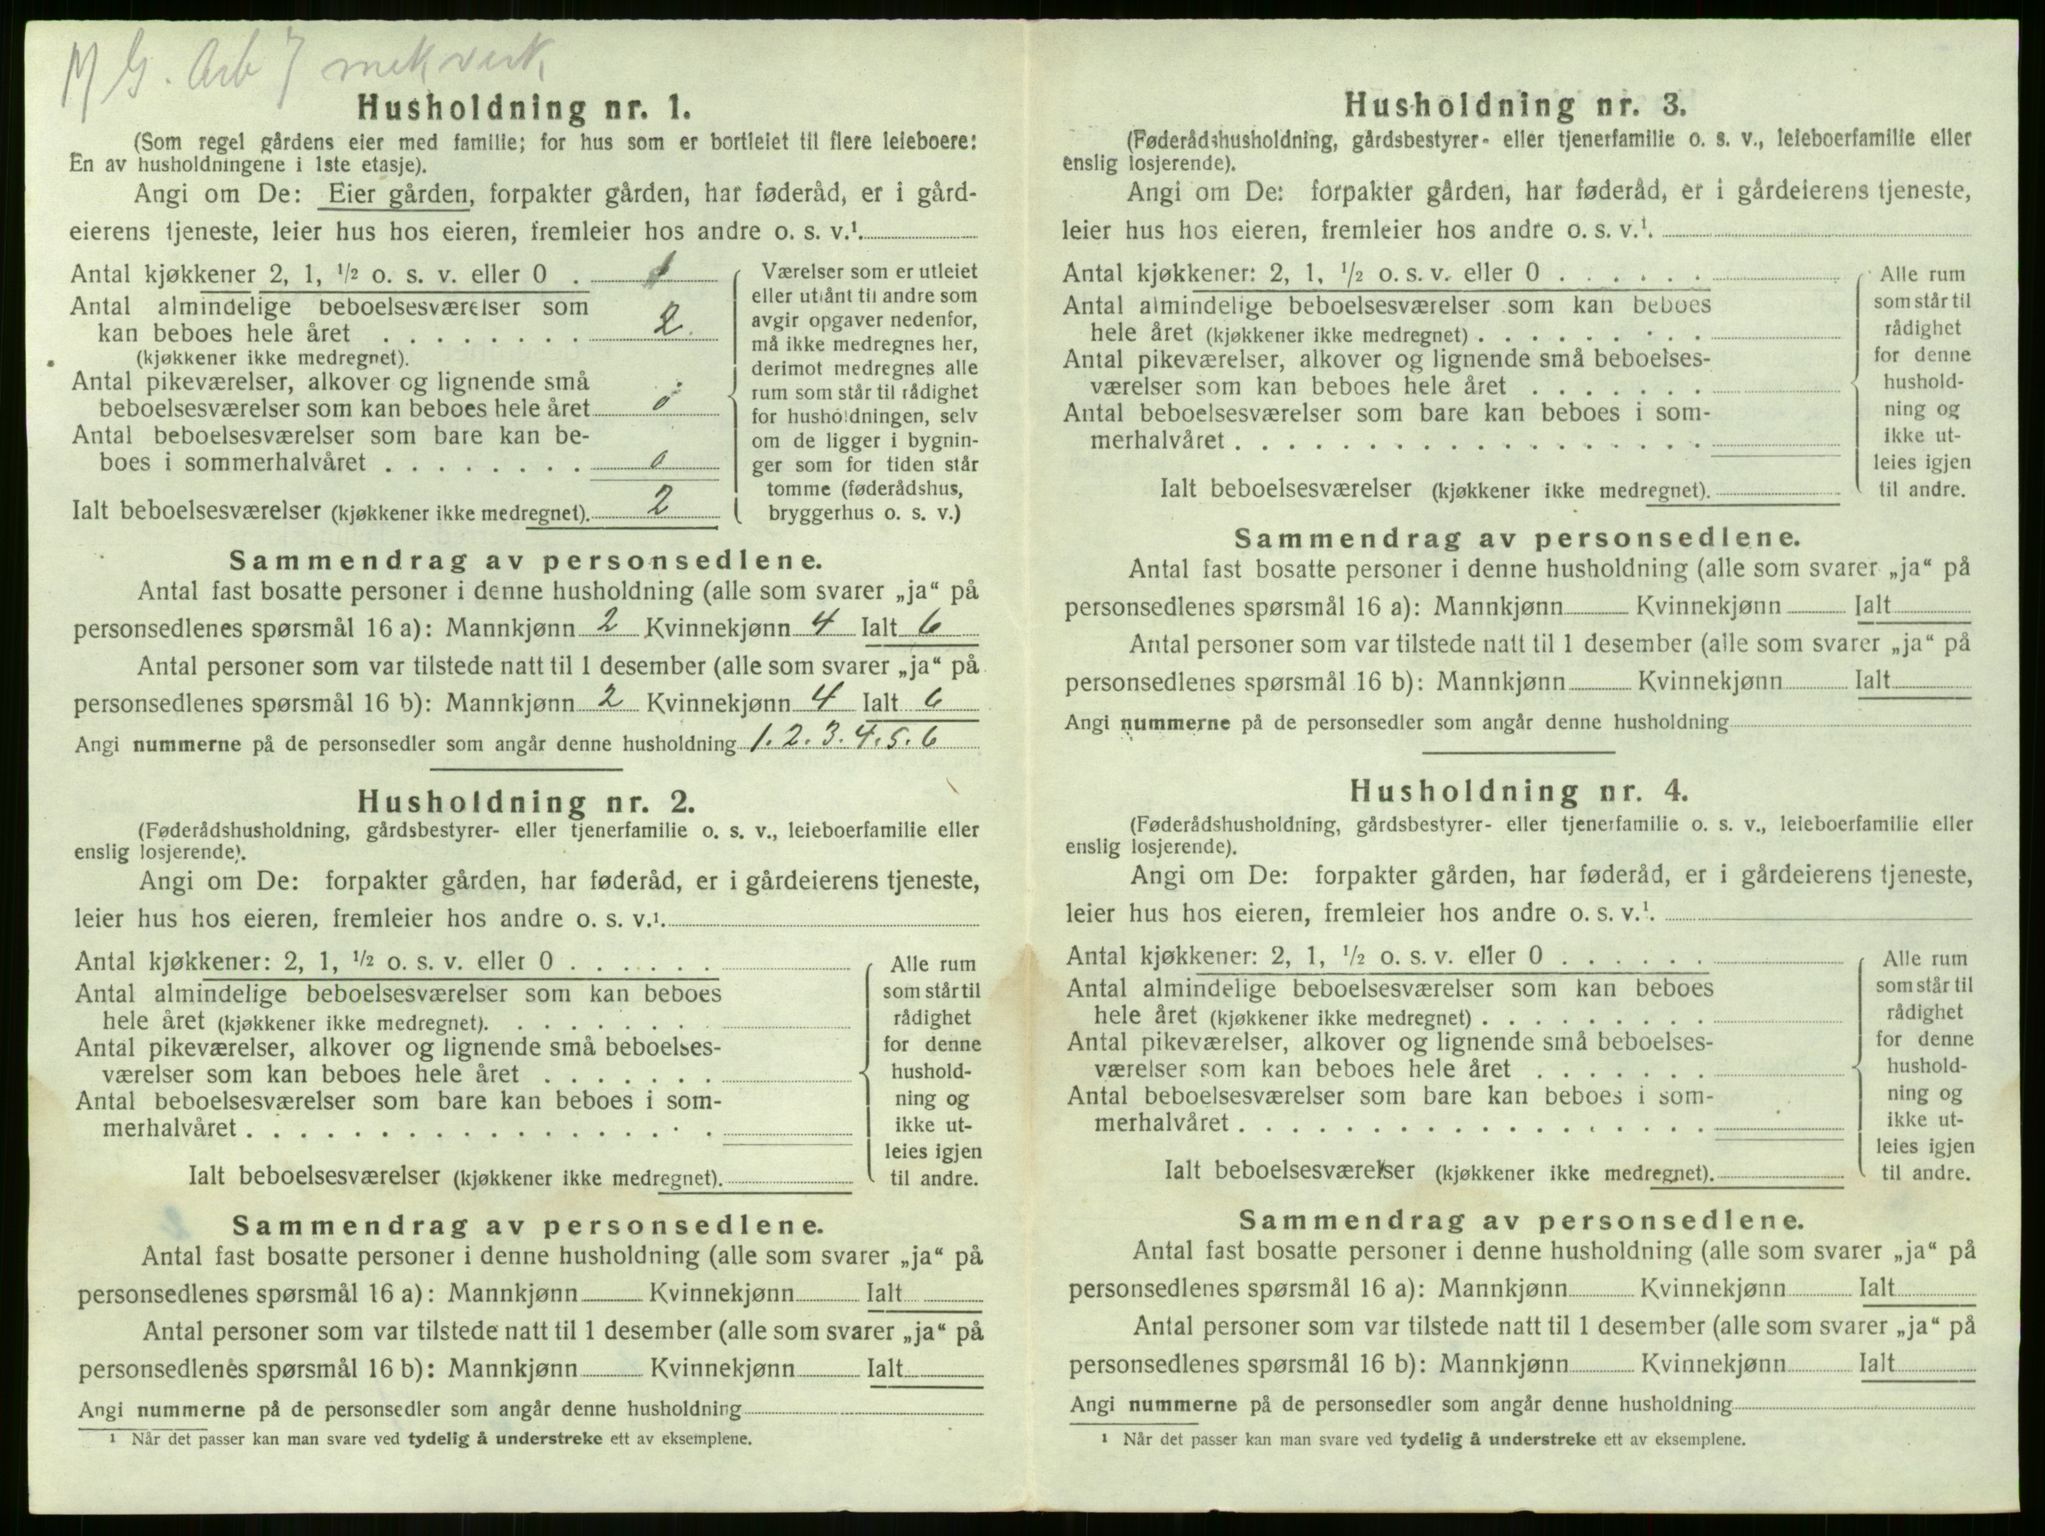 M G. Arb 7 mek verk
Husholdning nr. 1.
(Som regel gårdens eier med familie; for hus som er bortleiet til flere leieboere:
En av husholdningene i 1ste etasje).
Angi om De: Eier gården, forpakter gården, har føderåd, er i gård-
eierens tjeneste, leier hus hos eieren, fremleier hos andre o. s. v.¹.
Antal kjøkkener 2, 1, ½ o. s. v. eller 0 . 1
Antal almindelige beboelsesværelser som
kan beboes hele året . . . . . . . . 2
(kjøkkener ikke medregnet).
Antal pikeværelser, alkover og lignende små
beboelsesværelser som kan beboes hele året 0
Antal beboelsesværelser som bare kan be-
boes i sommerhalvåret . . . . . . . . 0
Ialt beboelsesværelser (kjøkkener ikke medregnet). 2
Værelser som er utleiet
eller utlånt til andre som
avgir opgaver nedenfor,
må ikke medregnes her,
derimot medregnes alle
rum som står til rådighet
for husholdningen, selv
om de ligger i bygnin-
ger som for tiden står
tomme (føderådshus,
bryggerhus o. s. v.)
Sammendrag av personsedlene.
Antal fast bosatte personer i denne husholdning (alle som svarer „ja“ på
personsedlenes spørsmål 16 a): Mannkjønn 2 Kvinnekjønn 4 Ialt 6
Antal personer som var tilstede natt til 1 desember (alle som svarer „ja“ på
personsedlenes spørsmål 16 b): Mannkjønn 2 Kvinnekjønn 4 Ialt 6
Angi nummerne på de personsedler som angår denne husholdning 1. 2. 3. 4. 5. 6
Husholdning nr. 2.
(Føderådshusholdning, gårdsbestyrer- eller tjenerfamilie o. s. v., leieboerfamilie eller
enslig losjerende).
Angi om De: forpakter gården, har føderåd, er i gårdeierens tjeneste,
leier hus hos eieren, fremleier hos andre o. s. v.¹.
Antal kjøkkener: 2, 1, ½ o. s. v. eller 0 . . . . . .
Antal almindelige beboelsesværelser som kan beboes
hele året (kjøkkener ikke medregnet). . . . . . . . .
Antal pikeværelser, alkover og lignende små beboelses-
værelser som kan beboes hele året . . . . . . .
Antal beboelsesværelser som bare kan beboes i som-
merhalvåret . . . . . . . . . . . . . . . . . .
Ialt beboelsesværelser (kjøkkener ikke medregnet).
Alle rum
som står til
rådighet
for denne
hushold-
ning og
ikke ut-
leies igjen
til andre.
Sammendrag av personsedlene.
Antal fast bosatte personer i denne husholdning (alle som svarer „ja“ på
personsedlenes spørsmål 16 a): Mannkjønn Kvinnekjønn Ialt
Antal personer som var tilstede natt til 1 desember (alle som svarer „ja“ på
personsedlenes spørsmål 16 b): Mannkjønn Kvinnekjønn Ialt
Angi nummerne på de personsedler som angår denne husholdning
¹ Når det passer kan man svare ved tydelig å understreke ett av eksemplene.
Husholdning nr. 3.
(Føderådshusholdning, gårdsbestyrer- eller tjenerfamilie o. s. v., leieboerfamilie eller
enslig losjerende).
Angi om De: forpakter gården, har føderåd, er i gårdeierens tjeneste,
leier hus hos eieren, fremleier hos andre o. s. v.¹.
Antal kjøkkener: 2, 1, ½ o. s. v. eller 0 . . . . . .
Antal almindelige beboelsesværelser som kan beboes
hele året (kjøkkener ikke medregnet) . . . . . . . . .
Antal pikeværelser, alkover og lignende små beboelses-
værelser som kan beboes hele året . . . . . . .
Antal beboelsesværelser som bare kan beboes i som-
merhalvåret . . . . . . . . . . . . . . . . . .
Ialt beboelsesværelser (kjøkkener ikke medregnet).
Alle rum
som står til
rådighet
for denne
hushold-
ning og
ikke ut-
leies igjen
til andre.
Sammendrag av personsedlene.
Antal fast bosatte personer i denne husholdning (alle som svarer „ja“ på
personsedlenes spørsmål 16 a): Mannkjønn Kvinnekjønn Ialt
Antal personer som var tilstede natt til 1 desember (alle som svarer „ja“ på
personsedlenes spørsmål 16 b): Mannkjønn Kvinnekjønn Ialt
Angi nummerne på de personsedler som angår denne husholdning
Husholdning nr. 4.
(Føderådshusholdning, gårdsbestyrer- eller tjenerfamilie o. s. v., leieboerfamilie eller
enslig losjerende).
Angi om De: forpakter gården, har føderåd, er i gårdeierens tjeneste,
leier hus hos eieren, fremleier hos andre o. s. v.¹.
Antal kjøkkener: 2, 1, ½ o. s. v. eller 0 . . . . . .
Antal almindelige beboelsesværelser som kan beboes
hele året (kjøkkener ikke medregnet) . . . . . . . . .
Antal pikeværelser, alkover og lignende små beboelses-
værelser som kan beboes hele året . . . . . . .
Antal beboelsesværelser som bare kan beboes i som-
merhalvåret . . . . . . . . . . . . . . . . . .
Ialt beboelsesværelser (kjøkkener ikke medregnet).
Alle rum
som står til
rådighet
for denne
hushold-
ning og
ikke ut-
leies igjen
til andre.
Sammendrag av personsedlene.
Antal fast bosatte personer i denne husholdning (alle som svarer „ja“ på
personsedlenes spørsmål 16 a): Mannkjønn Kvinnekjønn Ialt
Antal personer som var tilstede natt til 1 desember (alle som svarer „ja“ på
personsedlenes spørsmål 16 b): Mannkjønn Kvinnekjønn Ialt
Angi nummerne på de personsedler som angår denne husholdning
¹ Når det passer kan man svare ved tydelig å understreke ett av eksemplene.